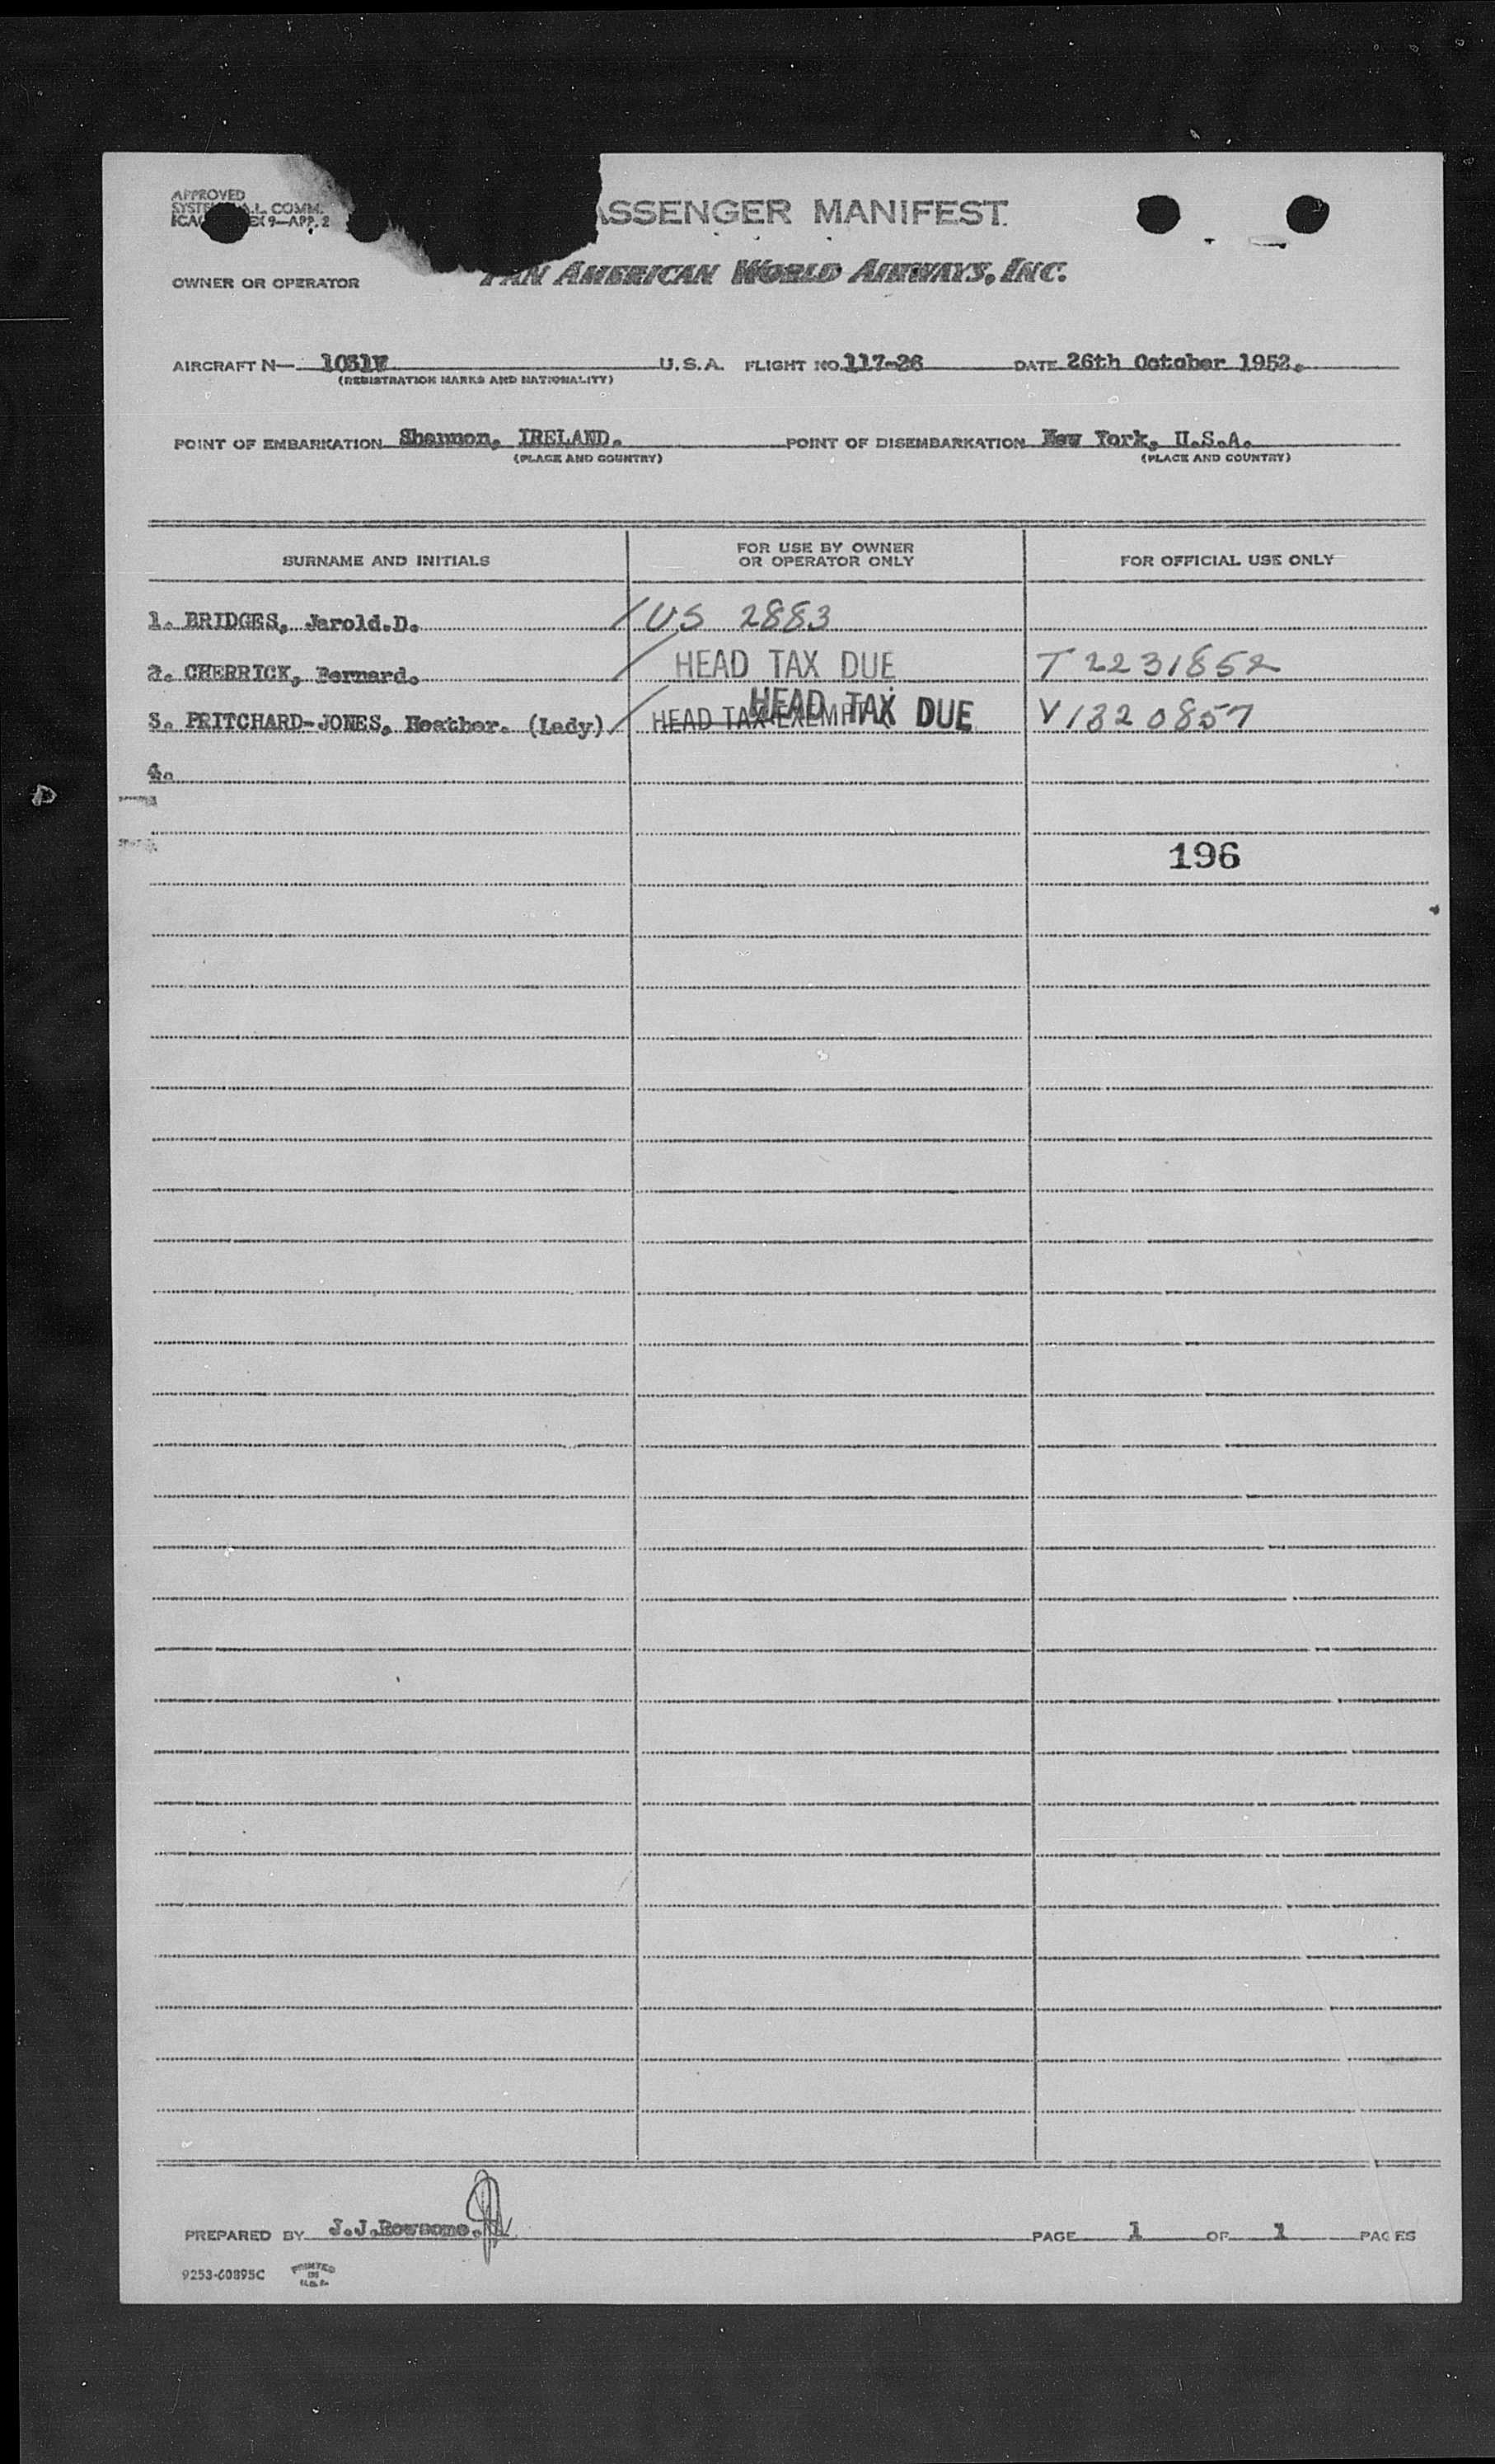 APPROVED
COMM.
9—APP. 2
ASSENGER MANIFEST
OWNER OR OPERATOR PAN AMERICAN WORLD AIRWAYS, INC.
AIRCRAFT N— 1031V U.S.A. FLIGHT NO. 117-26 DATE 26th October 1952.
(REGISTRATION MARKS AND NATIONALITY)
POINT OF EMBARKATION Shannon, IRELAND. POINT OF DISEMBARKATION New York, U.S.A.
(PLACE AND COUNTRY) (PLACE AND COUNTRY)
SURNAME AND INITIALS FOR USE BY OWNER OR OPERATOR ONLY FOR OFFICIAL USE ONLY
1. BRIDGES, Jarold.D. US 2883
2. CHERRICK, Bernard. HEAD TAX DUE T 2231852
3. PRITCHARD-JONES, Heather. (Lady) HEAD TAX EXEMPT HEAD TAX DUE V1320857
4.
196
PREPARED BY J.J.Rowsome. PAGE 1 OF 1 PAGES
9253-60895C PRINTED
IN
U.S.A.